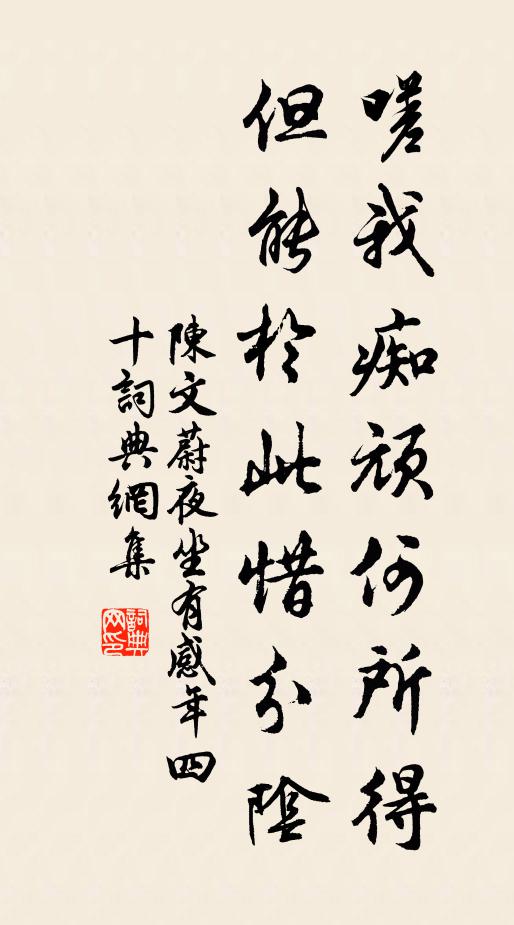 嗟我痴頑何所得
但能於此惜分陰
陳文蔚夜坐有感年四
十詞典網集
詞典
网印